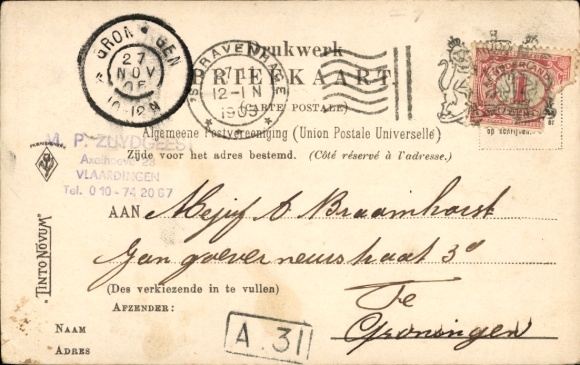 GRONINGEN
27
NOV
05
10-12N
'S GRAVENHAGE
27 11
12-1N
1905
Drukwerk
BRIEFKAART.
(CARTE POSTALE)
Algemeene Postvereeniging (Union Postale Universelle)
Zijde voor het adres bestemd. (Côté réservé à l'adresse.)
NEDERLAND
1
op schrijven.
M. P. ZUYDGEEST
Axelhoeve 28
VLAARDINGEN
Tel. 010-74 20 67
"TINTO NOVUM"
AAN Mejuf A Braamhorst
Te
Groningen
(Des verkiezende in te vullen)
AFZENDER:
A. 31
NAAM
ADRES